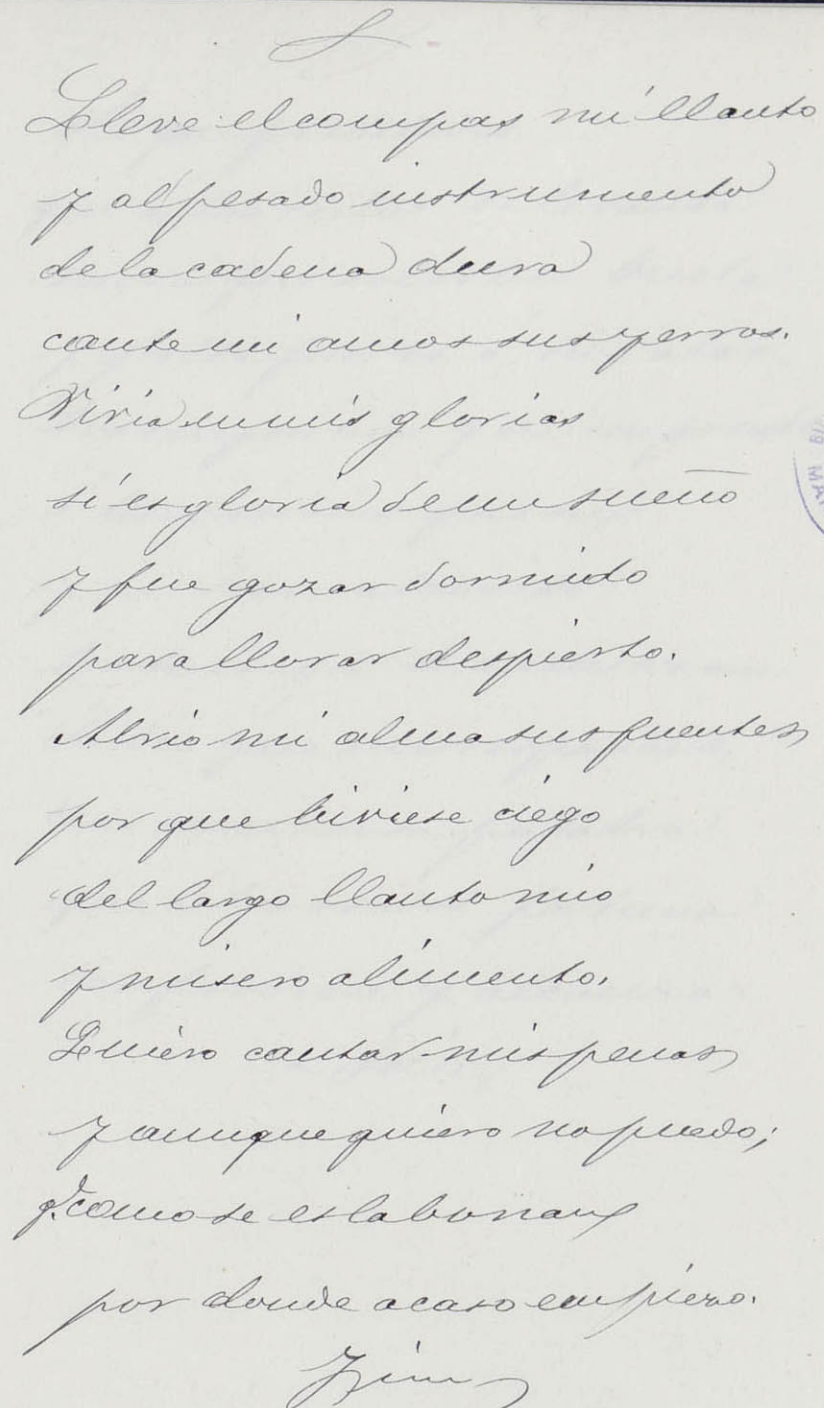 Lleve el compas mi llanto
y al pesado instrumento
de la cadena dura
cante mi amor sus yerros.
Vivia en mis glorias
si es gloria de un sueño
y fue gozar dormido
para llorar despierto.
Abrio mi alma sus fuentes
por que biviese ciego
del largo llanto mio
y misero alimento.
Quiero cantar mis penas
y aunque quiero no puedo;
q.e como se eslabonan
por donde acaso empiezo.
Fin